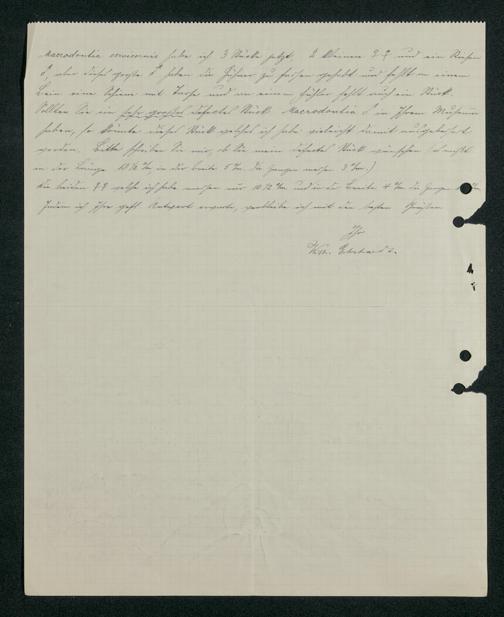 Macrodontia cervicornis habe ich 3 Stücke jetzt 2 kleinere ♀♀ und ein Riesen
♂, aber dieses große ♂ haben die Hühner zu fressen gehabt und fehlt an einem
Bein eine Schiene mit Tarse und an einem Fühler fehlt auch ein Stück.
Sollten Sie ein sehr großes defektes Stück Macrodontia ♂ in Ihrem Museum
haben, so könnte dieses Stück welches ich habe vielleicht damit ausgebessert
werden. Bitte schreiben Sie mir, ob Sie mein defektes Stück wünschen
in der Länge in der breite 5 die Zangen messen 3
die beiden ♀♀ welche ich habe messen nur 10 und in der breite 4 die Zangen
Indem ich Ihre gefl. Antwort erwarte, verbleibe ich mit den besten Grüßen
Ihr